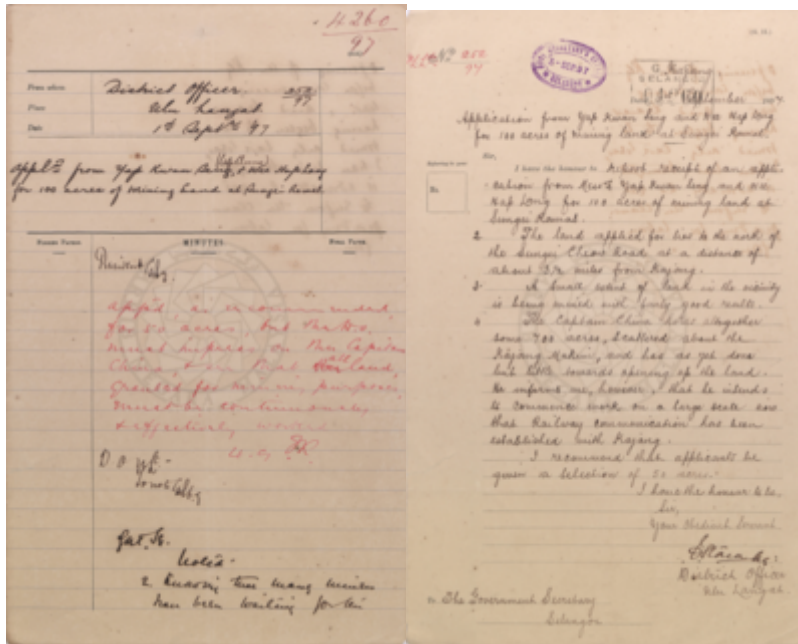 4260
97
From whom
District Officer
252
97
Place
Ulu Langat
Date
1st Septr 97
Appln from Yap Kwan Seng, & Wee Hap Long
for 100 acres of Mining Land at Sungei
MINUTES
Resident
approved as recommended
for 50 acres, but the D.O.
must impress on the Capitan
China, & that all land,
granted for mining purposes
must be continuously
& effectively worked
D O U L
to note
Noted.
2. Knowing how many miners
have been waiting for
No 252
97
SELANGOR
September
Application from Yap Kwan Seng and Wee Hap Long
for 100 acres of mining land at Sungei
Sir,
I have the honour to receipt of an appli-
cation from Messrs Yap Kwan Seng and Wee
Hap Long for 100 acres of mining land at
Sungei
2. The land applied for lies to the north of
the Sungei Cheow Road at a distance of
about 3½ miles from Kajang.
3. A small extent of land in the vicinity
is being mined with fairly good results.
4. The Captain China holds altogether
some 700 acres, scattered about the
Kajang Mukim, and has as yet done
but little towards opening up the land.
He informs me, however, that he intends
to commence work on a large scale now
that Railway communication has been
established with Kajang.
I recommend that applicants be
given a selection of 50 acres.
I have the honour to be,
Sir,
Your Obedient Servant
District Officer
Ulu Langat.
The Government Secretary
Selangor